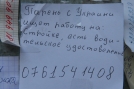 Парень с Украины
ищет работу на
стройке, есть води-
тельское удостоверение
0761541408